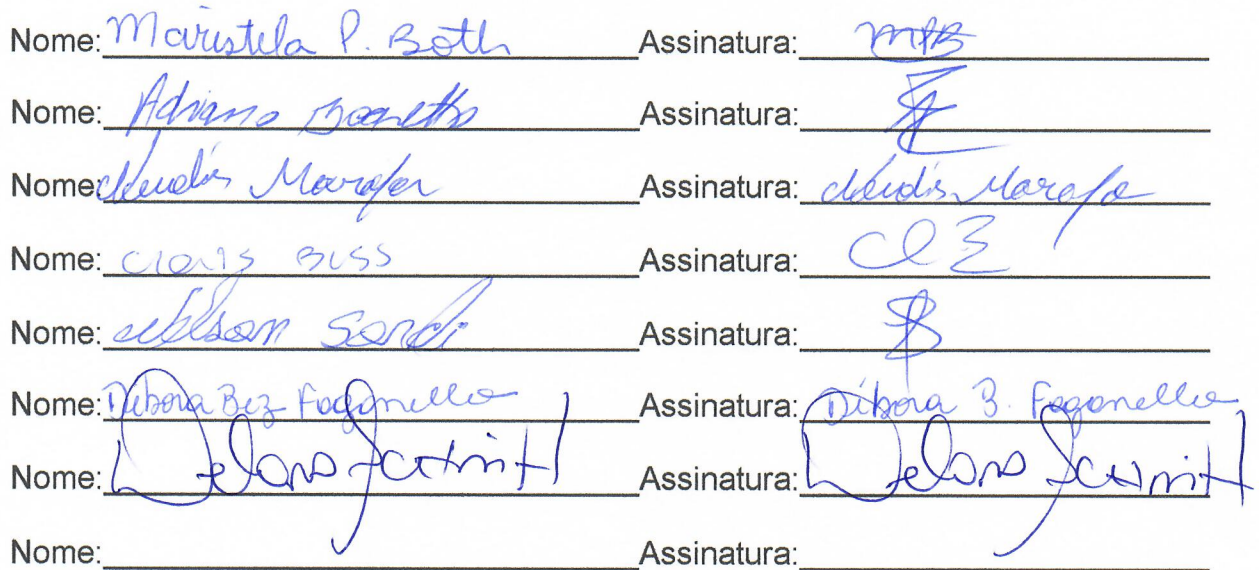 Nome: Maristela P. Both Assinatura: MPB
Nome: Adriano Assinatura:
Nome: Claudis Marafon Assinatura: Claudis Marafo
Nome: Clovis Biss Assinatura:
Nome: Nelson Sordi Assinatura:
Nome: Débora Bez Fogonella Assinatura: Débora B. Fogonella
Nome: Delano Schmitt Assinatura: Delano Schmitt
Nome: Assinatura: